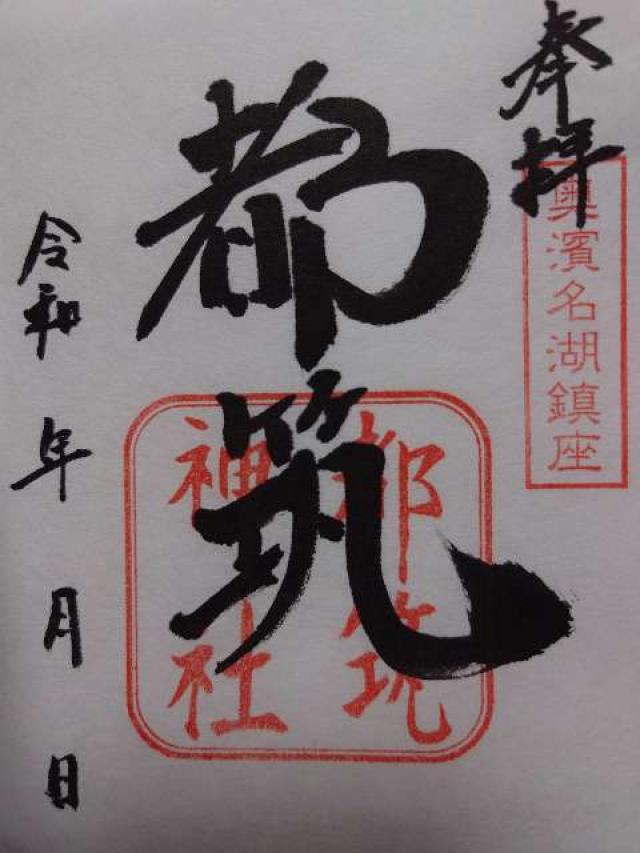 奉拝
奥濱名湖鎮座
都筑
都筑
神社
令和 年 月 日